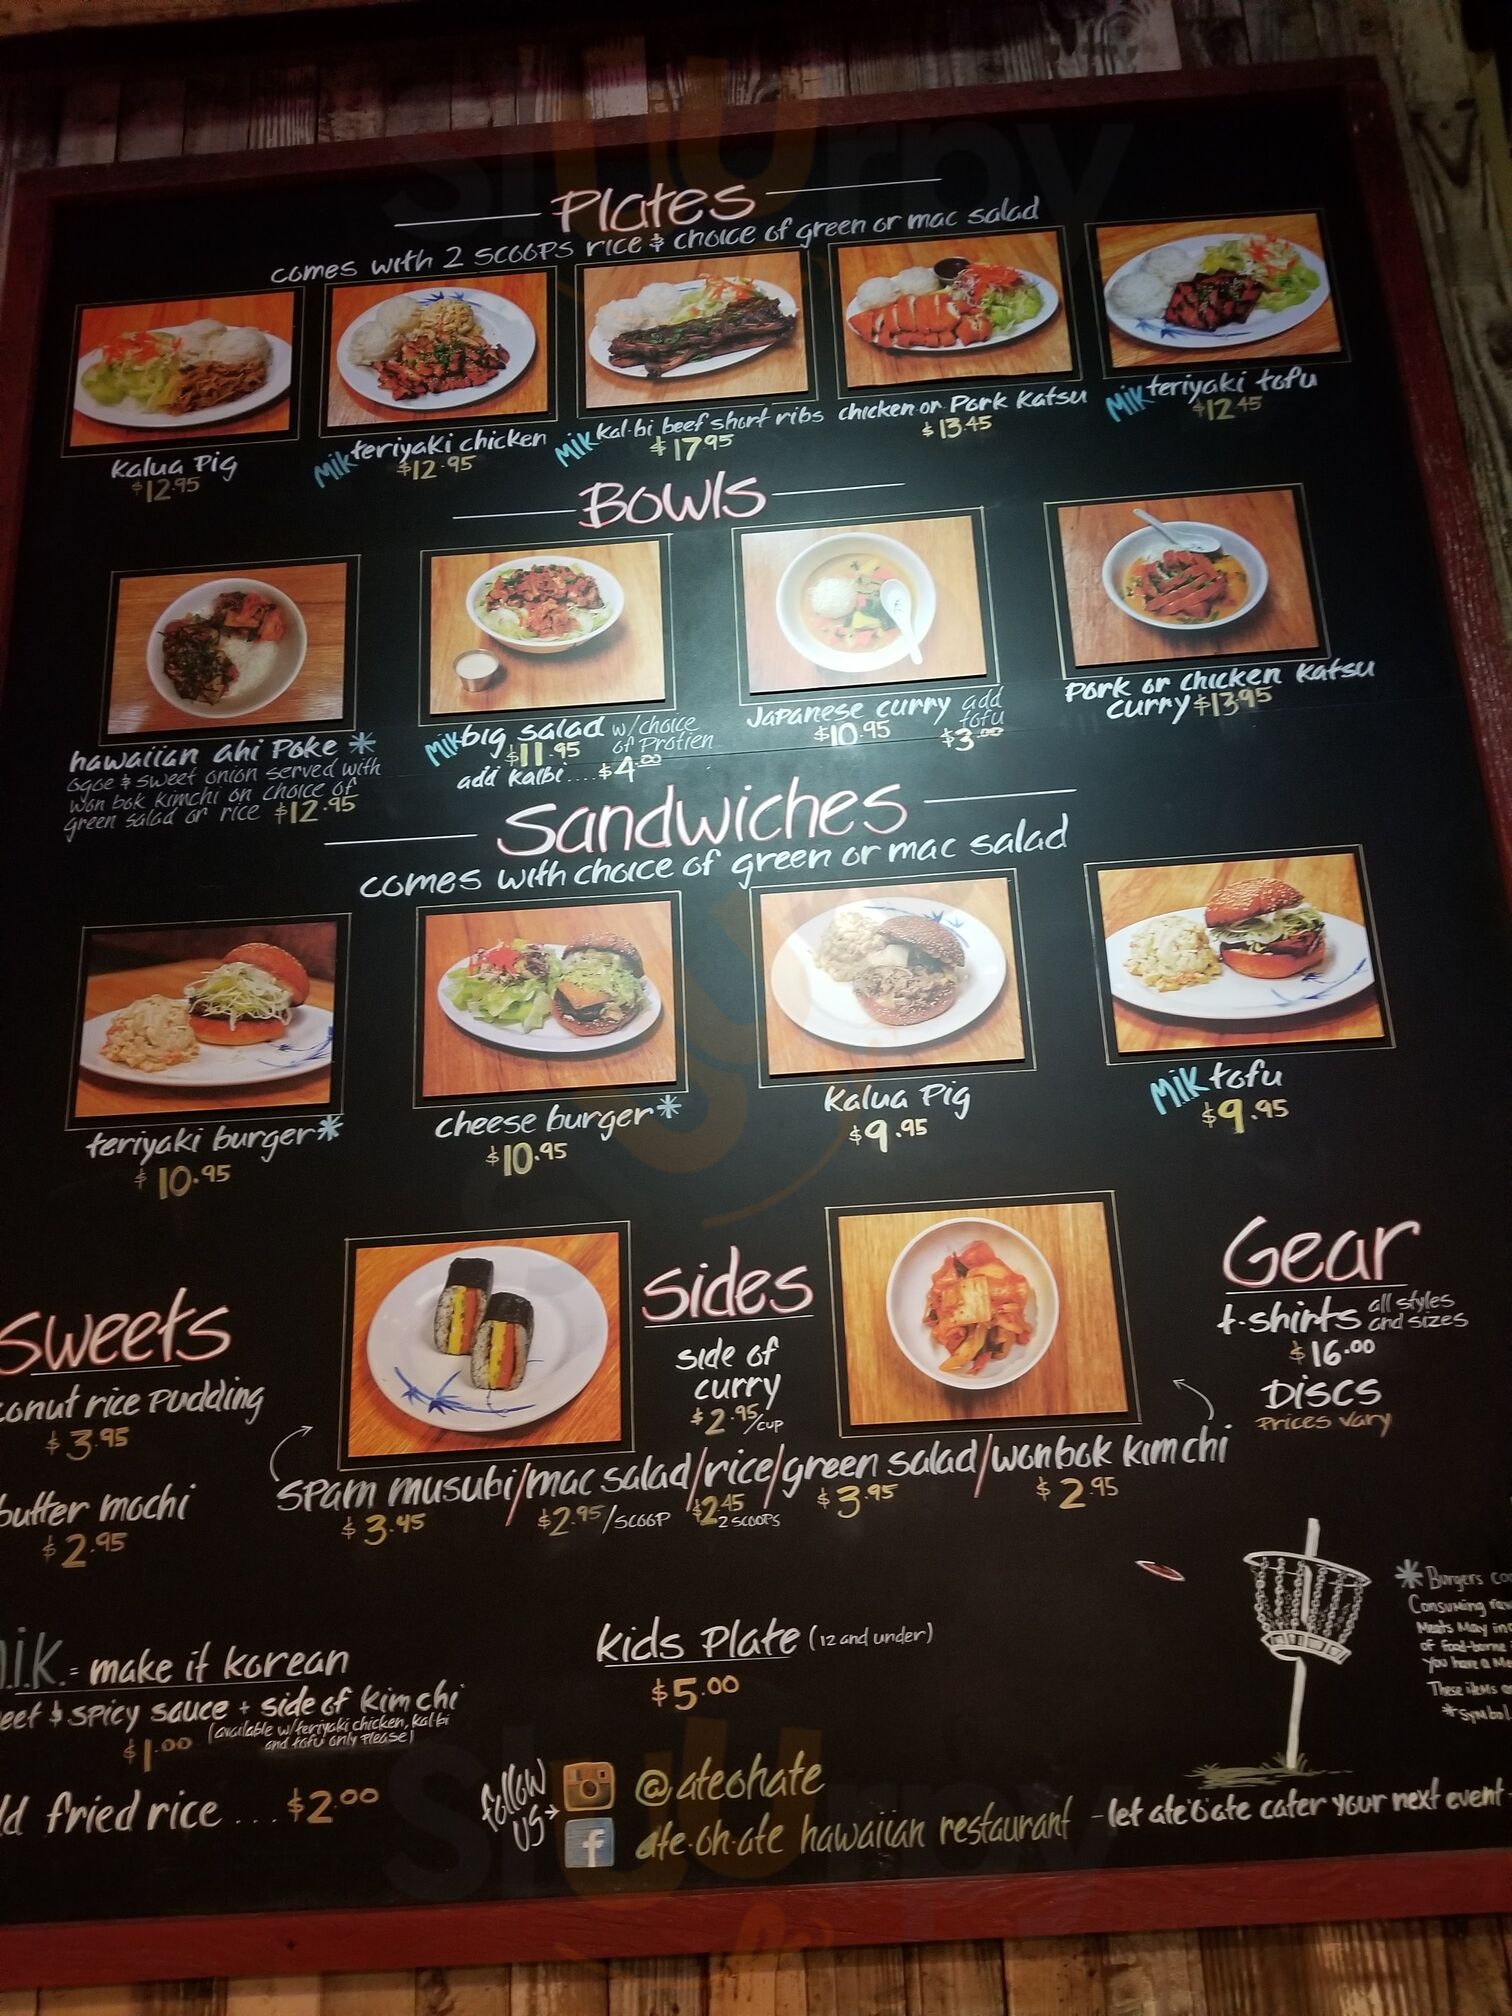 Plates
comes with 2 scoops rice & choice of green or mac salad
Kalua Pig
$12.95
MIK teriyaki chicken
$12.95
MIK kal-bi beef short ribs
$17.95
chicken or Pork Katsu
$13.45
MIK teriyaki tofu
$12.45
Bowls
hawaiian ahi Poke *
ogoe & sweet onion served with
won bok kimchi on choice of
green salad or rice $12.95
MIK big salad w/choice
of Protien
$11.95
add Kalbi.... $4.00
Japanese curry
$10.95
add
tofu
$3.00
Pork or chicken Katsu
curry $13.95
Sandwiches
comes with choice of green or mac salad
teriyaki burger *
$10.95
cheese burger *
$10.95
Kalua Pig
$9.95
MIK tofu
$9.95
Sweets
conut rice Pudding
$3.95
butter mochi
$2.95
Sides
side of
curry
$2.95/cup
Gear
t-shirts all styles
and sizes
$16.00
Discs
Prices vary
SPam musubi/mac salad/rice/green salad/wonbok kimchi
$3.45 $2.95/scoop $2.45 $3.95 $2.95
2 scoops
m.i.k. = make it korean
eef & spicy sauce + side of kimchi
$1.00 (available w/teriyaki chicken, kalbi
and tofu only please)
d fried rice ... $2.00
kids Plate (12 and under)
$5.00
* Burgers
Consuming
Meats May
of food-borne
You have a
These items
*symbol
follow
us →
@ateohate
ate-oh-ate hawaiian restaurant
- let ate'o'ate cater your next event
slurpy
slurpy